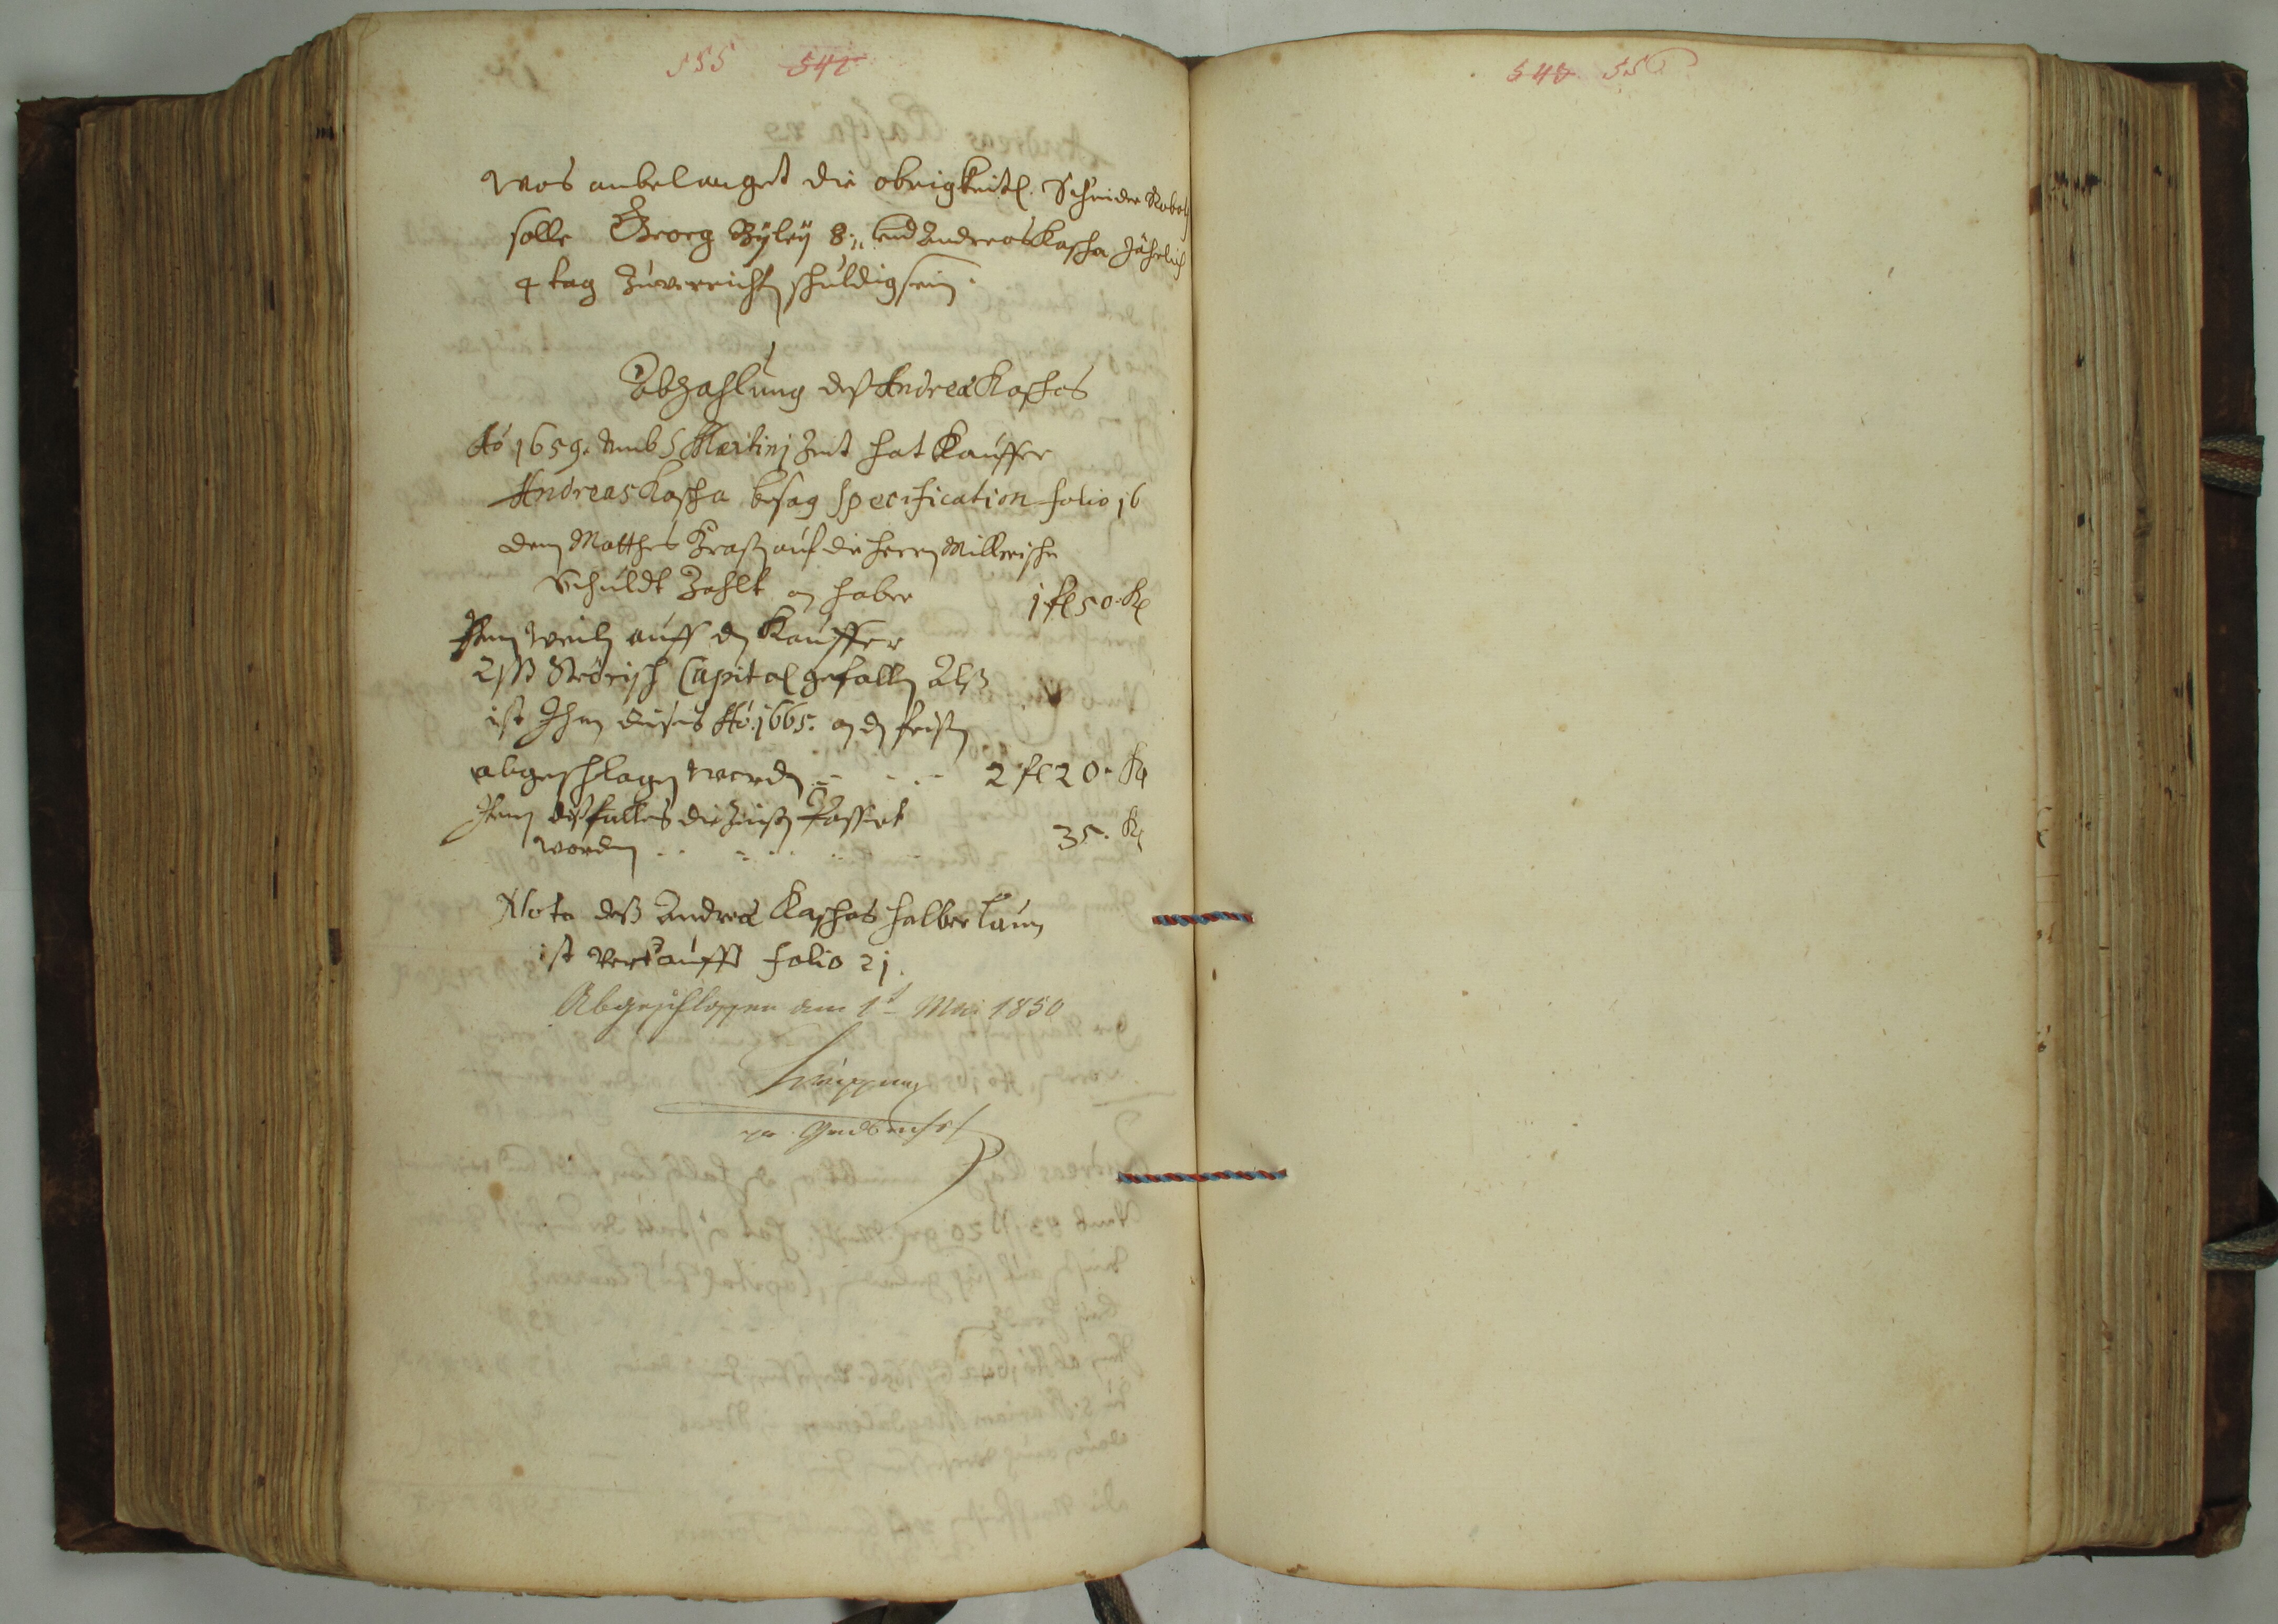 555 542
Was anbelanget die obrigkeitl. Schnider Roboth
solle Georg Byley 8:,, und Andreas Kascha Jährlich
4 tag zuverrichten schuldig sein.
Abzahlung deß Andrea Kaschas
Aõ 1659. Umb S Martinj Zeit hat Kauffer
Andreas Kascha besag Specification folio 16
dem Matthes auf die herrn Millerische
Schuldt Zahlt an haber 1 fl 50. Kr
Item Weiln auff den Kauffer
Capital gefallen Alß
ist Ihm dieses Aõ. 1665. an den fristen
abgeschlagen worden 2 fl 20. Kr
Item dißfalles die Zinsen Cassirt
worden 35. Kr
Nota deß Andrea Kaschas halber
ist Verkaufft folio 21.
Abgeschlossen am 1t Mai 1850
548 55